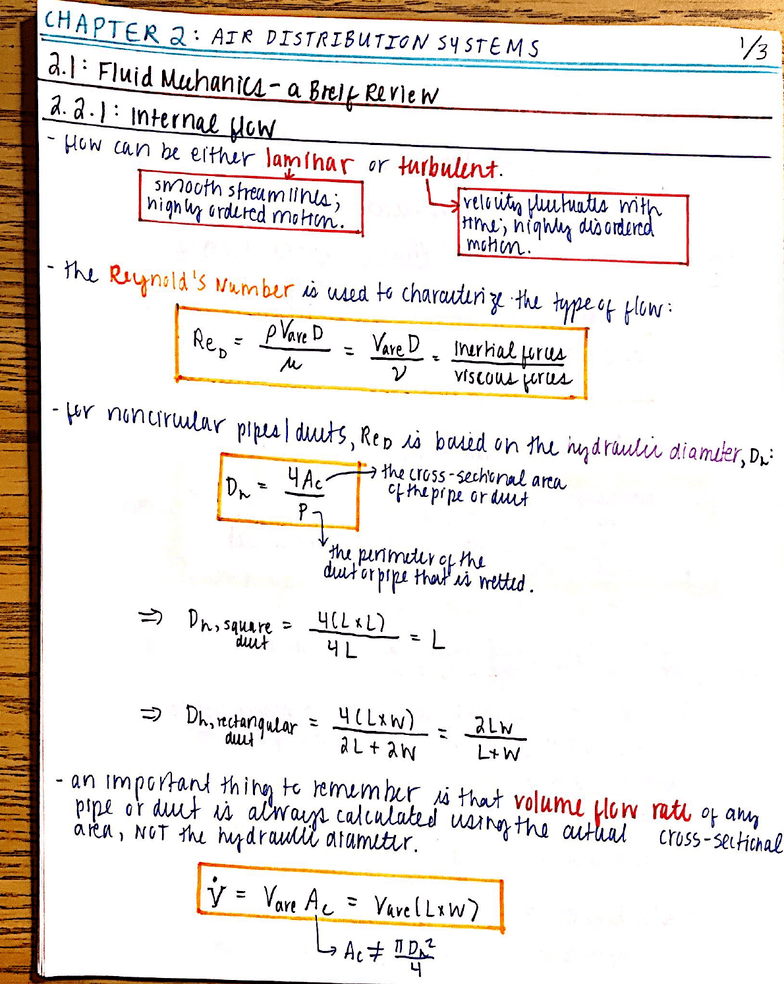 CHAPTER 2: AIR DISTRIBUTION SYSTEMS 1/3
2.1: Fluid Mechanics - a Breif Review
2.2.1: Internal flow
- flow can be either laminar or turbulent.
smooth streamlines;
highly ordered motion.
velocity fluctuates with
time; highly disordered
motion.
- the Reynold's Number is used to characterize the type of flow:
Re_D = ρ V_ave D / μ = V_ave D / ν = inertial forces / viscous forces
- for noncircular pipes/ducts, Re_D is based on the hydraulic diameter, D_h:
D_h = 4A_c / P
the cross-sectional area
of the pipe or duct
the perimeter of the
duct or pipe that is wetted.
⇒ D_h, square duct = 4(L×L) / 4L = L
⇒ D_h, rectangular duct = 4(L×W) / 2L+2W = 2LW / L+W
- an important thing to remember is that volume flow rate of any
pipe or duct is always calculated using the actual cross-sectional
area, NOT the hydraulic diameter.
V̇ = V_ave A_c = V_ave(L×W)
A_c ≠ πD_h² / 4